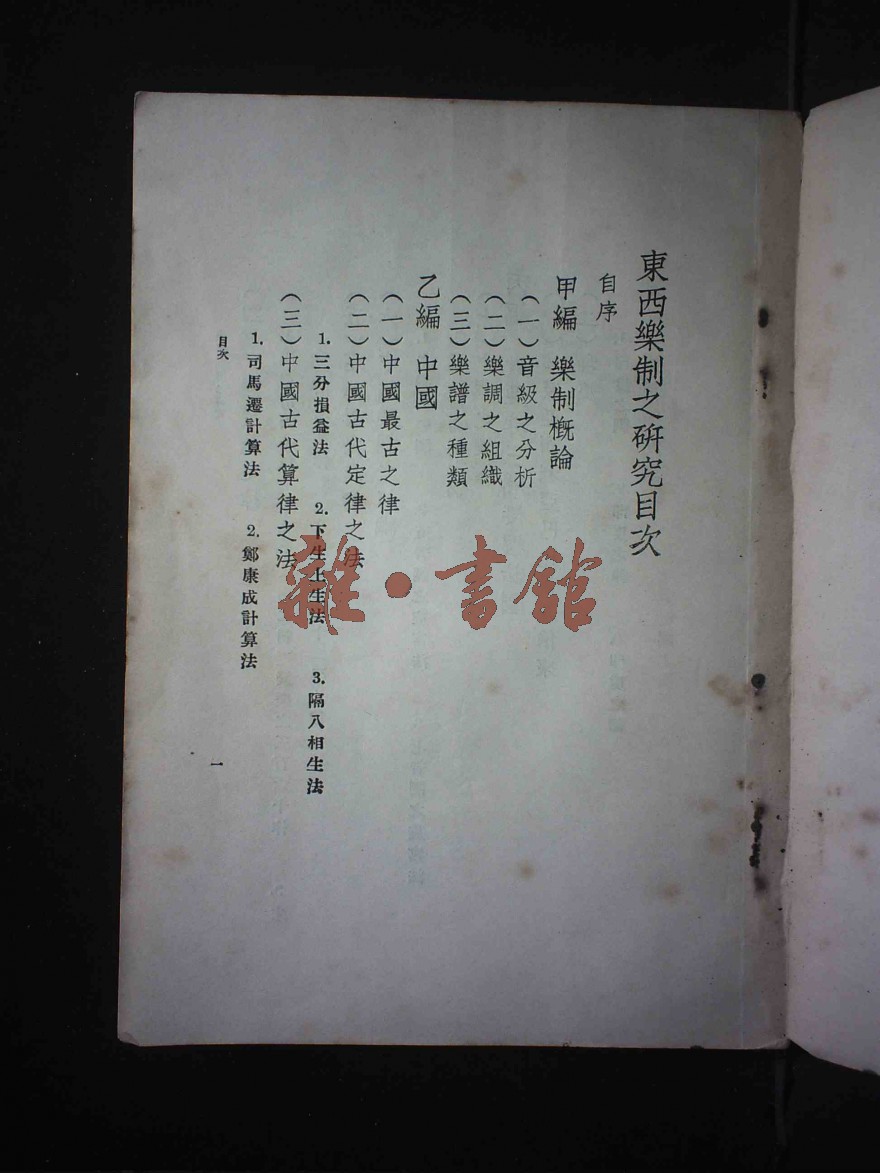 東西樂制之硏究目次
自序
甲編 樂制概論
(一)音級之分析
(二)樂調之組織
(三)樂譜之種類
乙編 中國
(一)中國最古之律
(二)中國古代定律之法
1. 三分損益法 2. 下生上生法 3. 隔八相生法
(三)中國古代算律之法
1. 司馬遷計算法 2. 鄭康成計算法
目次
一
雜·書館